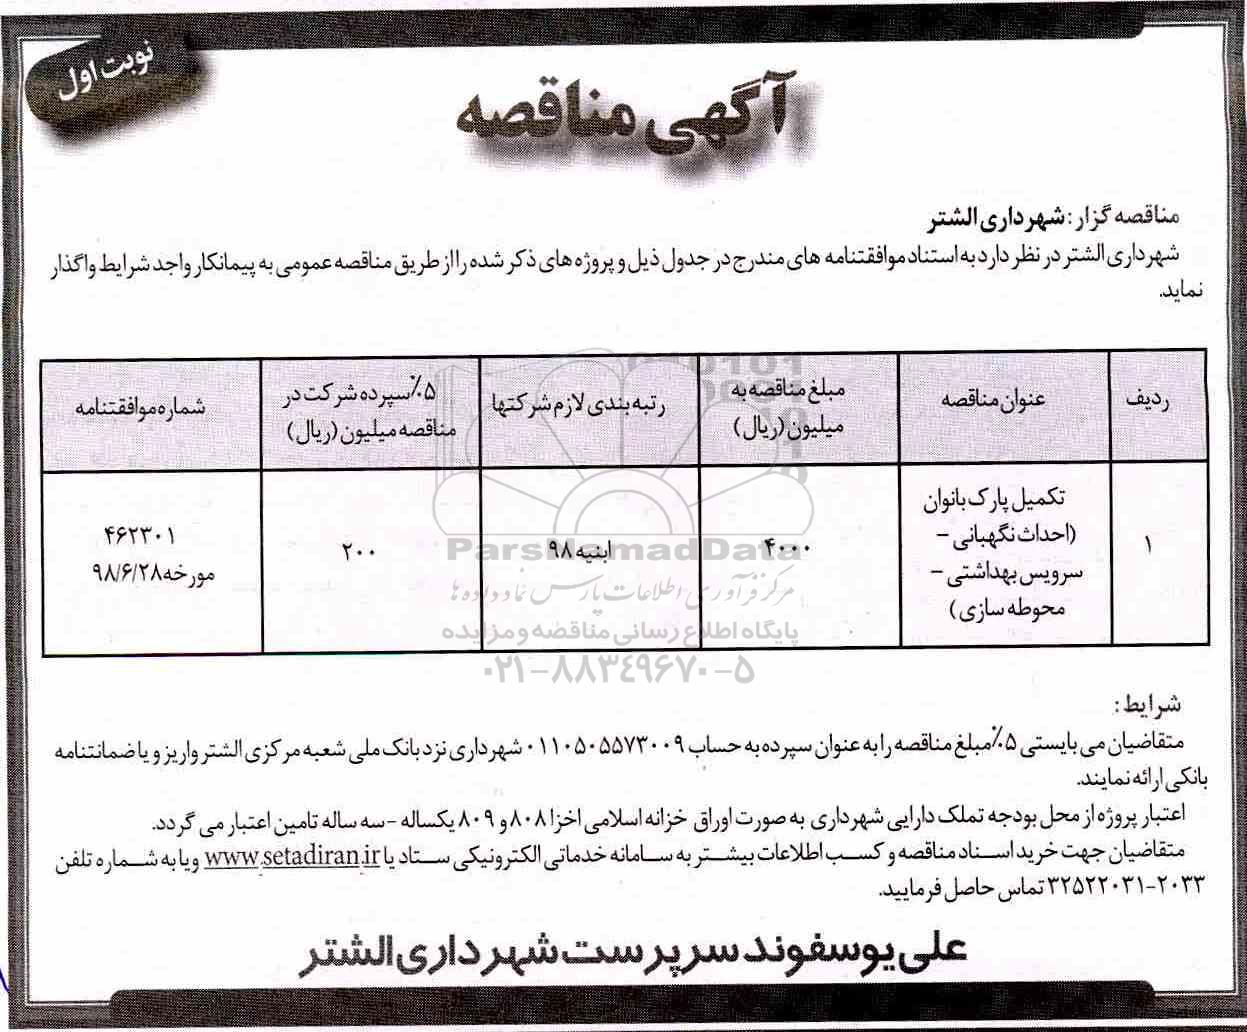 نوبت اول
آگهی مناقصه
مناقصه گزار: شهرداری الشتر
شهرداری الشتر در نظر دارد به استناد موافقتنامه های مندرج در جدول ذیل و پروژه های ذکر شده را از طریق مناقصه عمومی به پیمانکار واجد شرایط واگذار
نماید.
ردیف
عنوان مناقصه
مبلغ مناقصه به
میلیون (ریال)
رتبه بندی لازم شرکتها
۵٪ سپرده شرکت در
مناقصه میلیون (ریال)
شماره موافقتنامه
۱
تکمیل پارک بانوان
(احداث نگهبانی –
سرویس بهداشتی –
محوطه سازی)
۴۰۰۰
ابنیه ۹۸
۲۰۰
۴۶۲۳۰۱
مورخه ۹۸/۶/۲۸
ParsNamadData
مرکز فرآوری اطلاعات پارس نماد داده ها
پایگاه اطلاع رسانی مناقصه و مزایده
۰۲۱-۸۸۳۴۹۶۷۰-۵
شرایط:
متقاضیان می بایستی ۵٪ مبلغ مناقصه را به عنوان سپرده به حساب ۰۱۱۰۵۰۵۵۷۳۰۰۹ شهرداری نزد بانک ملی شعبه مرکزی الشتر واریز و یا ضمانتنامه
بانکی ارائه نمایند.
اعتبار پروژه از محل بودجه تملک دارایی شهرداری به صورت اوراق خزانه اسلامی اخزا ۸۰۸ و ۸۰۹ یکساله - سه ساله تامین اعتبار می گردد.
متقاضیان جهت خرید اسناد مناقصه و کسب اطلاعات بیشتر به سامانه خدماتی الکترونیکی ستاد یا www.setadiran.ir ویا به شماره تلفن
۳۲۵۲۲۰۳۱-۲۰۳۳ تماس حاصل فرمایید.
علی یوسفوند سرپرست شهرداری الشتر